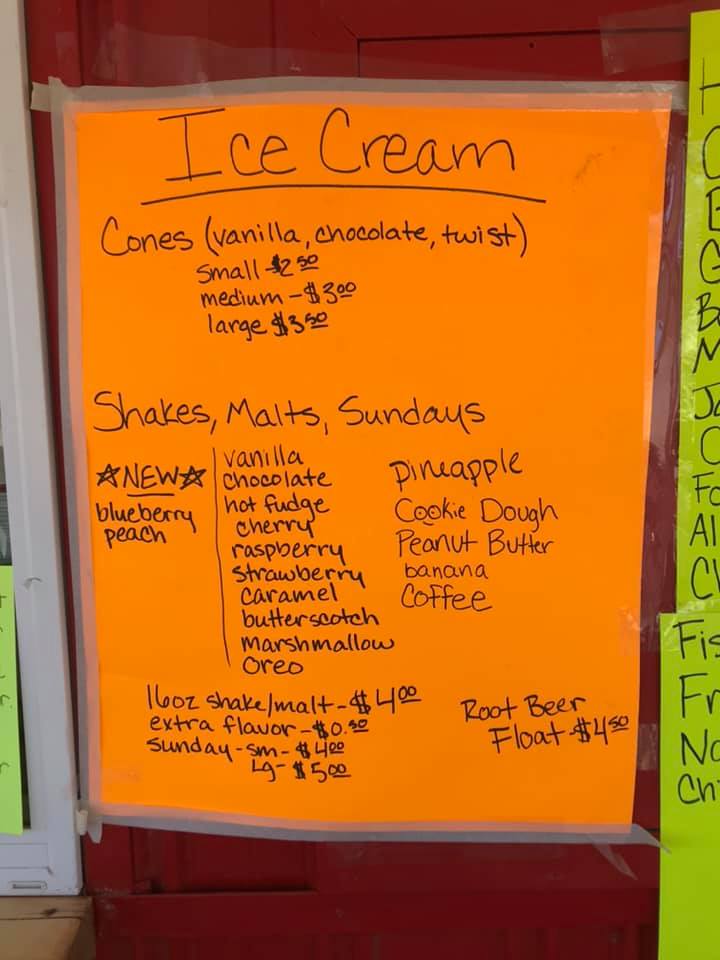 Ice Cream
Cones (vanilla, chocolate, twist)
small - $2.50
medium - $3.00
large $3.50
Shakes, Malts, Sundays
☆NEW☆
blueberry
peach
vanilla
chocolate
hot fudge
cherry
raspberry
strawberry
caramel
butterscotch
Marshmallow
Oreo
pineapple
Cookie Dough
Peanut Butter
banana
Coffee
16oz shake/malt - $4.00
extra flavor - $0.50
sunday - sm - $4.00
Lg - $5.00
Root Beer
Float - $4.50